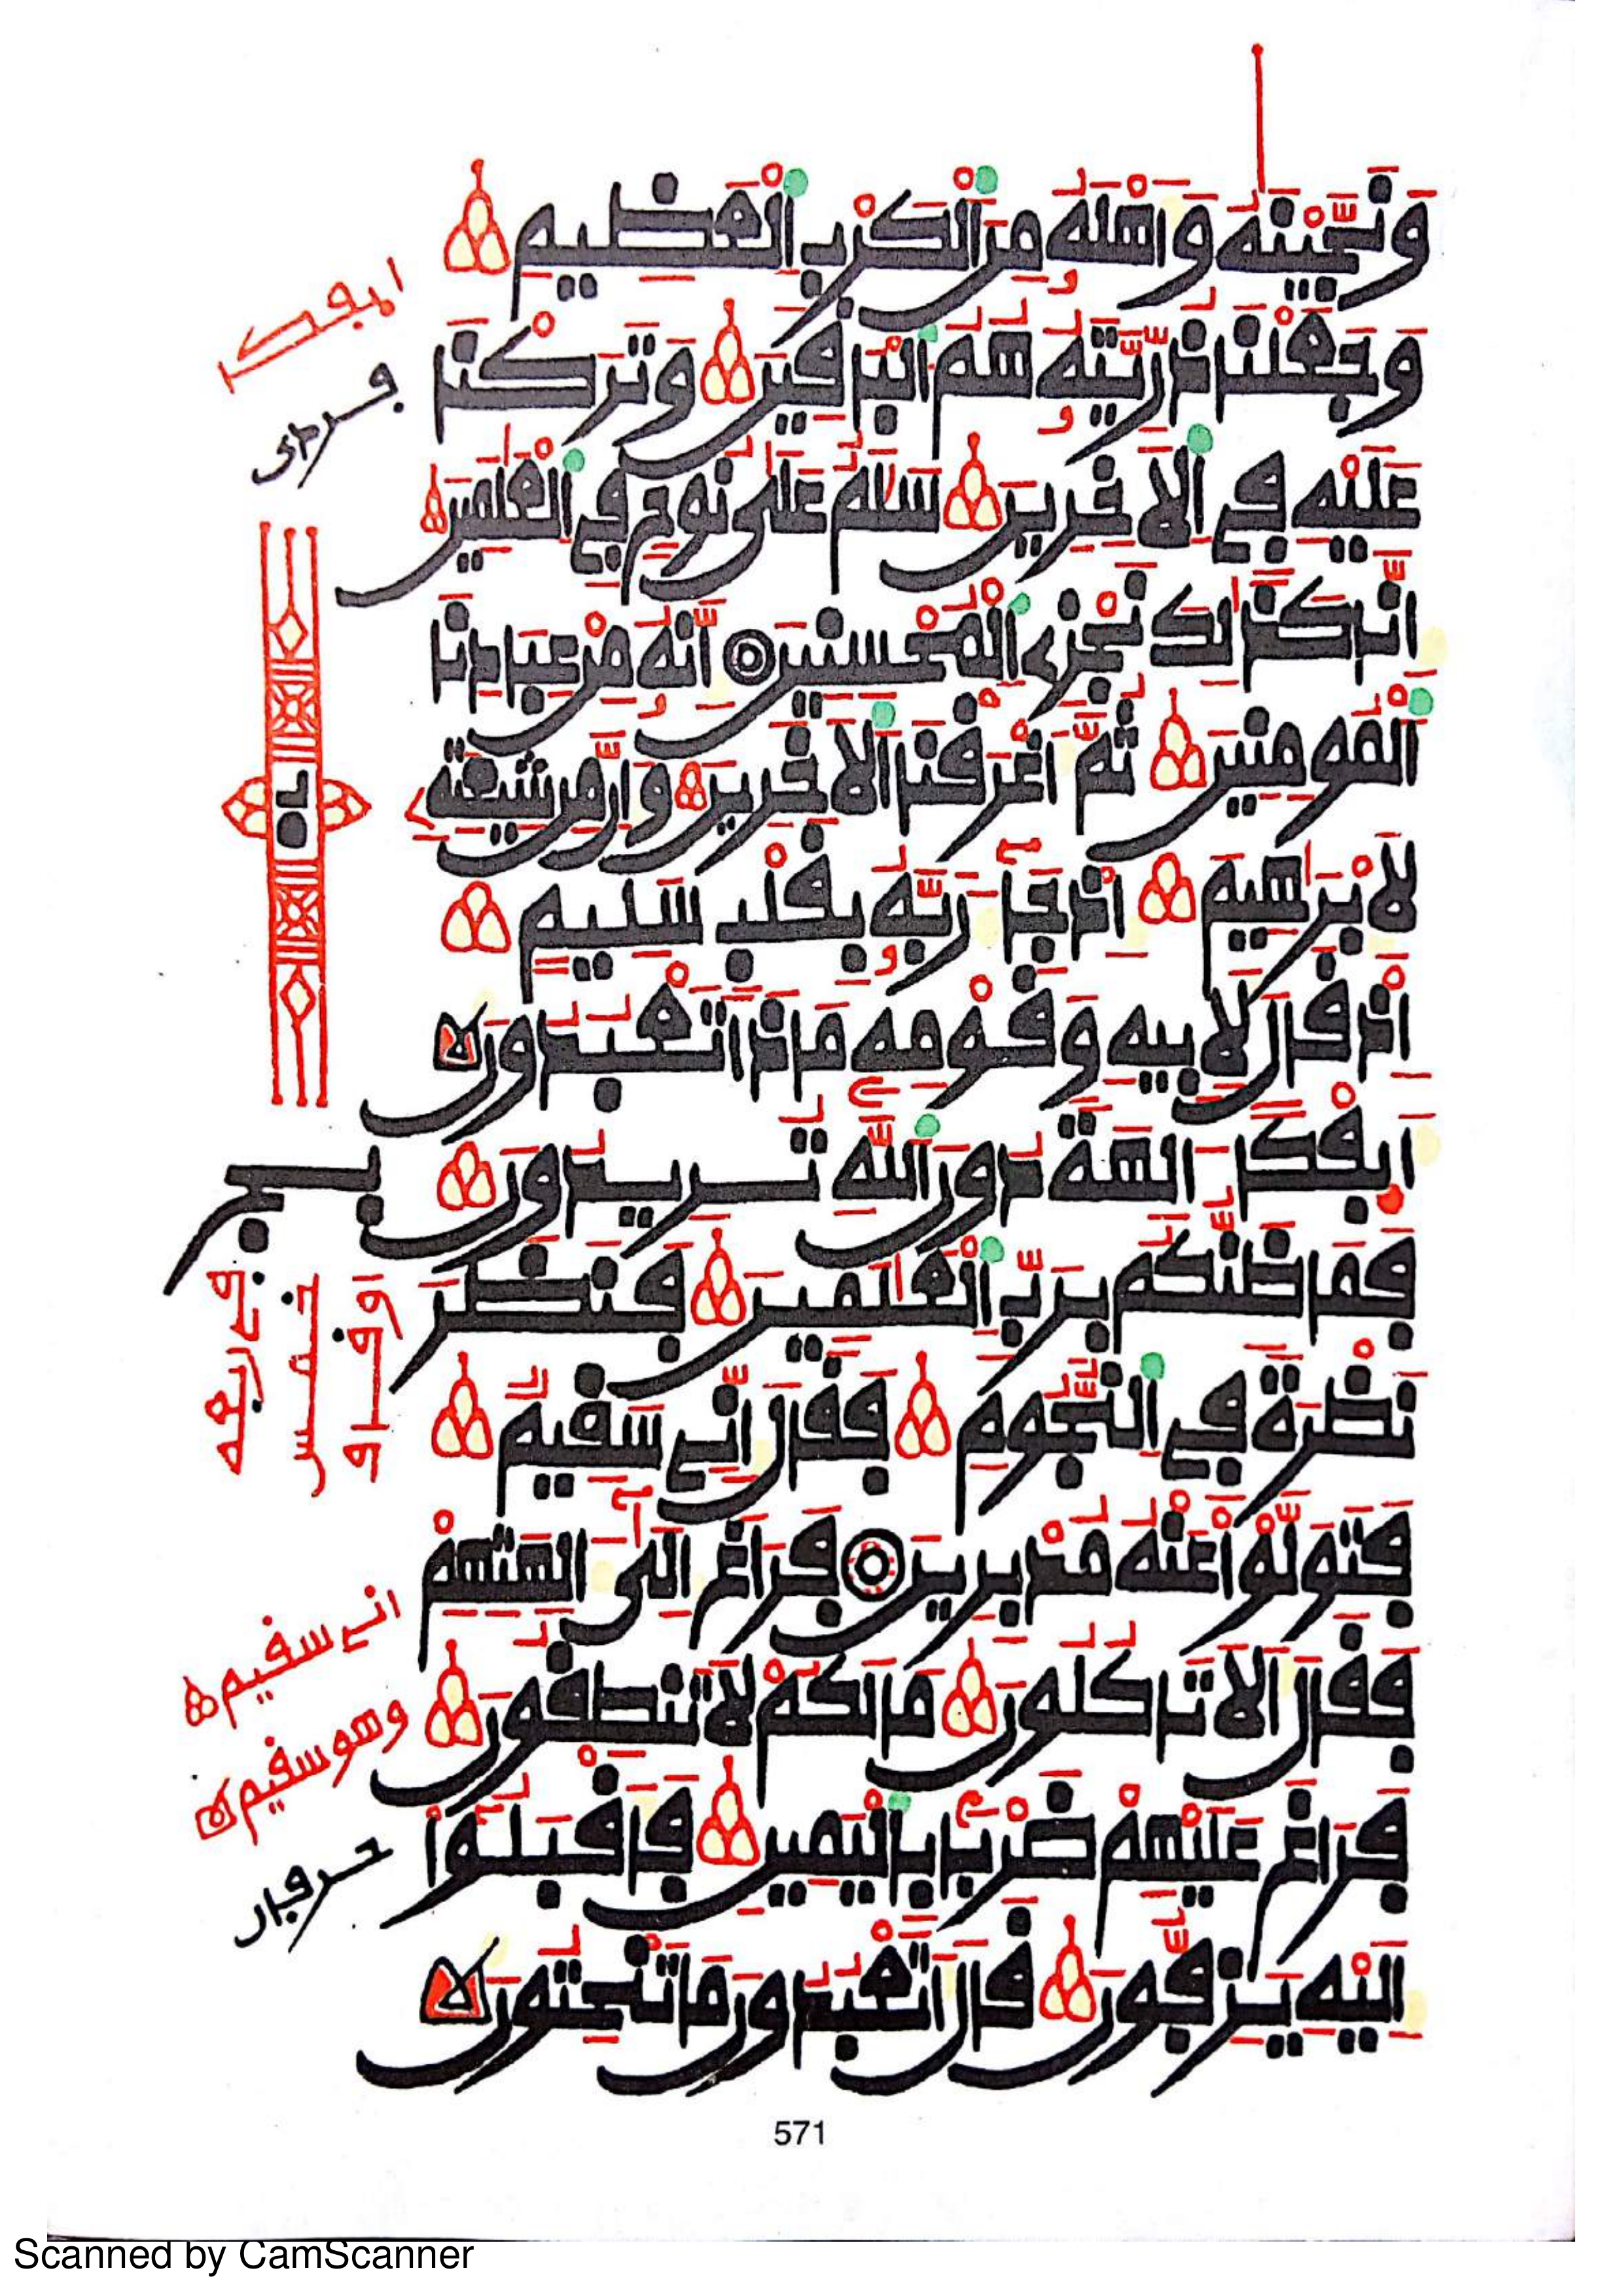 وَنَجَّيْنَٰهُ وَأَهْلَهُ مِنَ ٱلْكَرْبِ ٱلْعَظِيمِ
وَجَعَلْنَا ذُرِّيَّتَهُ هُمُ ٱلْبَاقِينَ وَتَرَكْنَا
عَلَيْهِ فِي ٱلْأَخِرِينَ سَلَٰمٌ عَلَىٰ نُوحٍ فِي ٱلْعَٰلَمِينَ
إِنَّا كَذَٰلِكَ نَجْزِي ٱلْمُحْسِنِينَ إِنَّهُ مِنْ عِبَادِنَا
ٱلْمُومِنِينَ ثُمَّ أَغْرَقْنَا ٱلْأَخَرِينَ وَإِنَّ مِن شِيعَتِهِ
لَإِبْرَٰهِيمَ إِذْ جَآ رَبَّهُ بِقَلْبٍ سَلِيمٍ
إِذْ قَالَ لِأَبِيهِ وَقَوْمِهِ مَاذَا تَعْبُدُونَ
أَيِفْكًا ءَالِهَةً دُونَ ٱللَّهِ تُرِيدُونَ
فَمَا ظَنُّكُم بِرَبِّ ٱلْعَٰلَمِينَ فَنَظَرَ
نَظْرَةً فِي ٱلنُّجُومِ فَقَالَ إِنِّي سَقِيمٌ
فَتَوَلَّوْا عَنْهُ مُدْبِرِينَ فَرَاغَ إِلَىٰٓ ءَالِهَتِهِمْ
فَقَالَ أَلَا تَاكُلُونَ مَا لَكُمْ لَا تَنطِقُونَ
فَرَاغَ عَلَيْهِمْ ضَرْبًا بِٱلْيَمِينِ فَأَقْبَلُوٓا
إِلَيْهِ يَزِفُّونَ قَالَ أَتَعْبُدُونَ مَا تَنْحِتُونَ
انے سقيم
وهو سقيم
571
Scanned by CamScanner